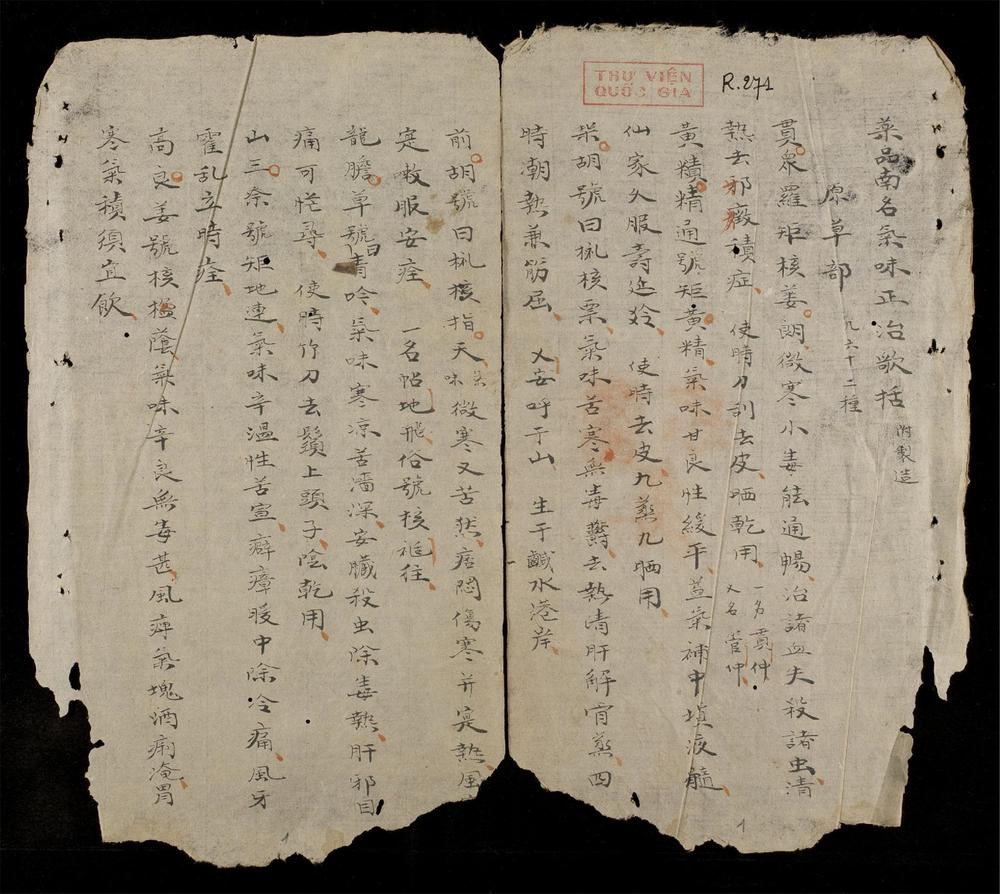 THƯ VIỆN
QUỐC GIA
R.271
藥品南名氣味正治歌括 附製造
原草部 九六十二種
貫衆羅矩核姜朗微寒小毒能通暢治諸血失殺諸虫清
熱去邪癥積症 使時刀刮去皮晒乾用 一名貫仲 又名管仲
黃精精通號矩黃精氣味甘良性緩平益氣補中塡液髓
仙家久服壽延齡 使時去皮九蒸九晒用
柴胡號曰核票氣味苦寒無毒欝去熱清肝解蒸四
時朝熱兼筋屈 又安呼于山 生于鹹水港岸
前胡號曰核指天氣味微寒又苦然痞悶傷寒并寔熱風
寔嗽服安痊 一名帖地飛俗號核往
龍膽草號曰青吟氣味寒凉苦濇深安臟殺虫除毒熱肝邪目
痛可恾尋 使時竹刀去鬚上頭子陰乾用
山三奈號矩地連氣味辛溫性苦宣癖瘴暖中除冷痛風牙
霍乱立時痊
高良姜號核蔭氣味辛良無毒甚風痺氣塊洒痢淹胃
寒氣積須宜飲
1
1